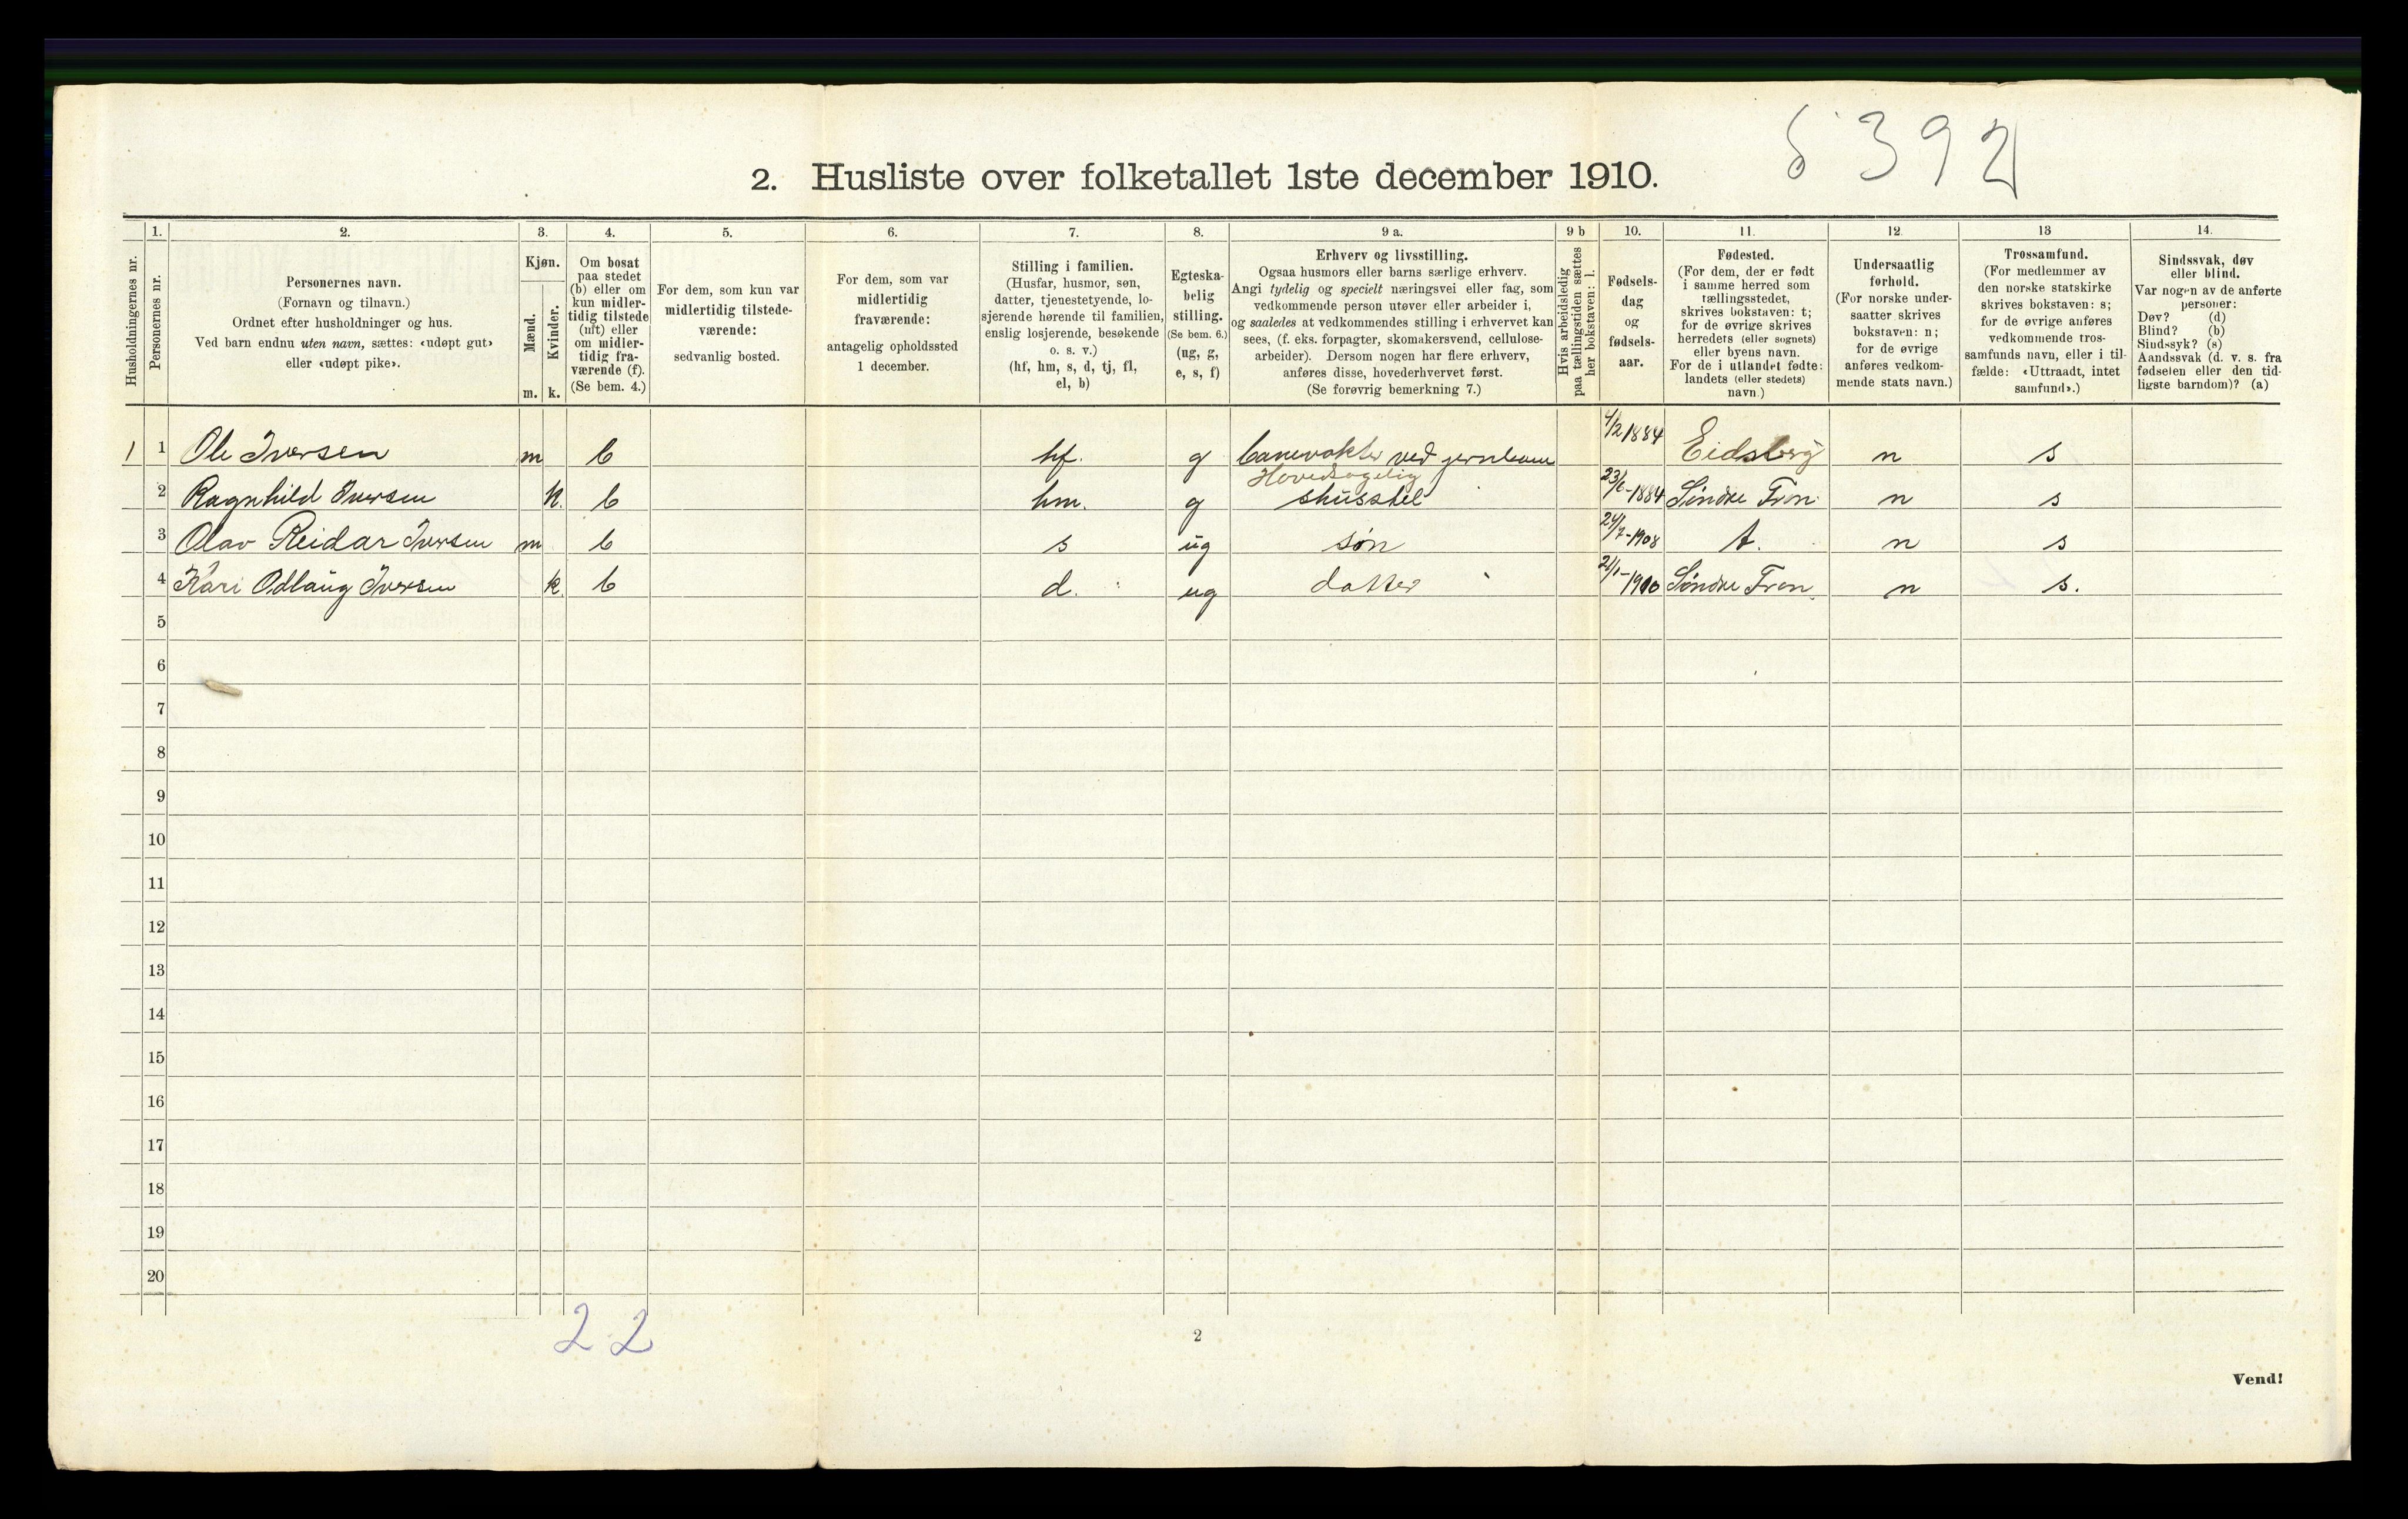 8392
2. Husliste over folketallet 1ste december 1910.
Husholdningernes nr.
1.
Personernes nr.
2.
Personernes navn.
(Fornavn og tilnavn.)
Ordnet efter husholdninger og hus.
Ved barn endnu uten navn, sættes: «udøpt gut»
eller «udøpt pike».
3.
Kjøn.
Mænd.
Kvinder.
m. k.
4.
Om bosat
paa stedet
(b) eller om
kun midler-
tidig tilstede
(mt) eller
om midler-
tidig fra-
værende (f).
(Se bem. 4.)
5.
For dem, som kun var
midlertidig tilstede-
værende:
sedvanlig bosted.
6.
For dem, som var
midlertidig
fraværende:
antagelig opholdssted
1 december.
7.
Stilling i familien.
(Husfar, husmor, søn,
datter, tjenestetyende, lo-
sjerende hørende til familien,
enslig losjerende, besøkende
o. s. v.)
(hf, hm, s, d, tj, fl,
el, b)
8.
Egteska-
belig
stilling.
(Se bem. 6.)
(ug, g,
e, s, f)
9 a.
Erhverv og livsstilling.
Ogsaa husmors eller barns særlige erhverv.
Angi tydelig og specielt næringsvei eller fag, som
vedkommende person utøver eller arbeider i,
og saaledes at vedkommendes stilling i erhvervet kan
sees, (f. eks. forpagter, skomakersvend, cellulose-
arbeider). Dersom nogen har flere erhverv,
anføres disse, hovederhvervet først.
(Se forøvrig bemerkning 7.)
9 b
Hvis arbeidsledig
paa tællingstiden sættes
her bokstaven: l.
10.
Fødsels-
dag
og
fødsels-
aar.
11.
Fødested.
(For dem, der er født
i samme herred som
tællingsstedet,
skrives bokstaven: t;
for de øvrige skrives
herredets (eller sognets)
eller byens navn.
For de i utlandet fødte:
landets (eller stedets)
navn.)
12.
Undersaatlig
forhold.
(For norske under-
saatter skrives
bokstaven: n;
for de øvrige
anføres vedkom-
mende stats navn.)
13
Trossamfund.
(For medlemmer av
den norske statskirke
skrives bokstaven: s;
for de øvrige anføres
vedkommende tros-
samfunds navn, eller i til-
fælde: «Uttraadt, intet
samfund».)
14.
Sindssvak, døv
eller blind.
Var nogen av de anførte
personer:
Døv? (d)
Blind? (b)
Sindssyk? (s)
Aandssvak (d. v. s. fra
fødselen eller den tid-
ligste barndom)? (a)
1 1 Ole Iversen m b hf. g banevokter ved jernbane 4/2 1884 Eidsberg n s
Hovedsagelig
2 Ragnhild Iversen k. b hm. g shusstel 23/6-1884 Søndre Fron n s
3 Olav Reidar Iversen m b s ug søn 24/7-1908 t. n s
4 Kari Odlaug Iversen k. b d. ug datter 21/1-1910 Søndre Fron n s.
5
6
7
8
9
10
11
12
13
14
15
16
17
18
19
20
2 2
2
Vend!